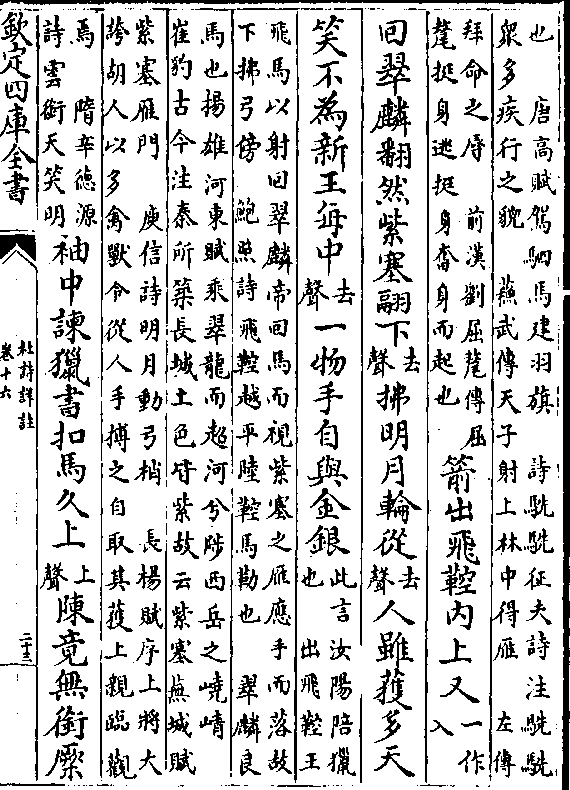 也　唐高賦駕駟馬建羽旗　詩駪駪征夫詩注駪駪
衆多疾行之貌　蘇武傳天子射上林中得雁　左傳
拜命之辱　前漢劉屈氂傳屈
氂挺身逃挺身奮身而起也
箭出飛鞚內上又一作入
回翠麟翻然紫塞翮下去聲拂明月輪從去聲人雖獲多天
笑不為新王每中去聲一物手自與金銀
此言汝陽陪獵
也　出飛鞚王
飛馬以射回翠麟帝回馬而視紫塞之雁應手而落故
下拂弓傍　鮑照詩飛鞚越平陸鞚馬勒也　翠麟良
馬也揚雄河東賦乘翠龍而超河兮陟西岳之嶢崝
崔豹古今注秦所築長城土色皆紫故云紫塞蕪城賦
紫塞雁門　庾信詩明月動弓梢　長楊賦序上將大
誇胡人以多禽獸令從人手搏之自取其獲上親臨觀
焉　隋辛德源
詩雲銜天笑明
袖中諫獵書扣馬久上上聲陳竟無銜橛
欽定四庫全書
杜詩詳註
卷十六
二十三